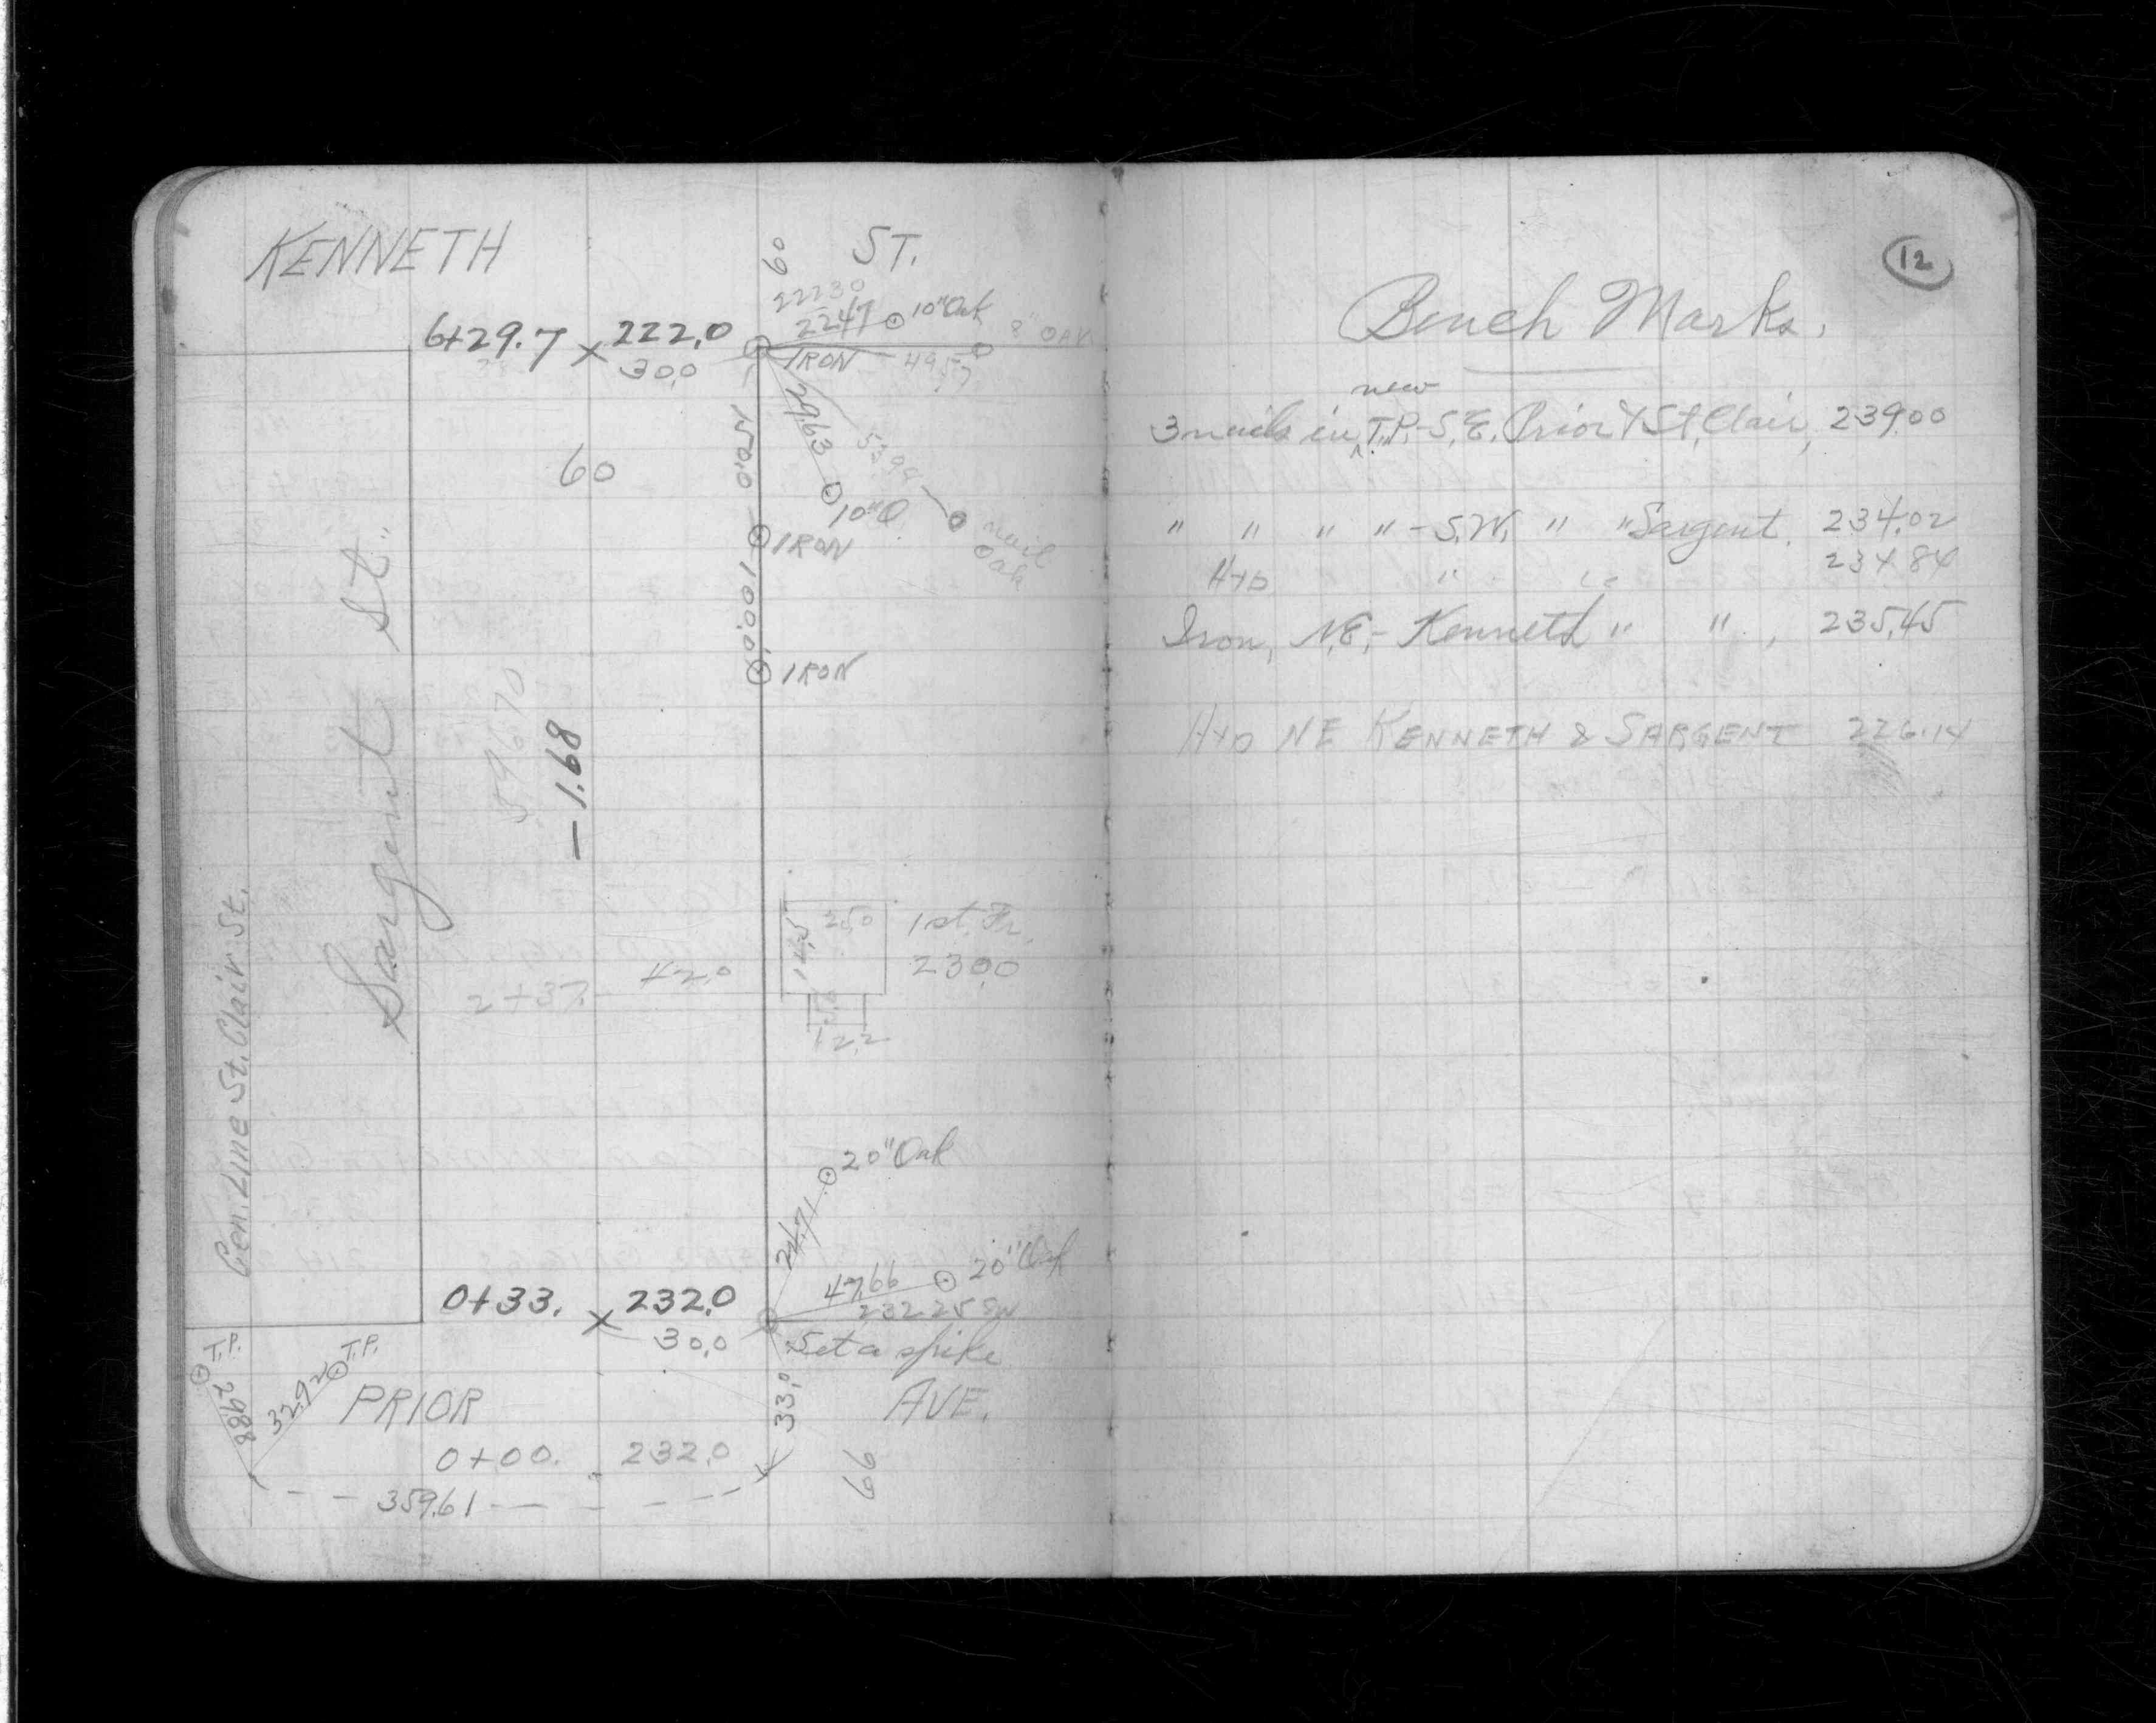 KENNETH ST.
60
222.30
22.47 10" Oak
6+29.7 x 222.0
30.0
IRON
49.57
8" OAK
29.63
53.99
150.0
60
10" O.
nail
Oak
IRON
100.0
IRON
Sargent St.
596.70
- 1.68
Cen. Line St. Clair St.
14.5
25.0
1st. Fr.
230.0
2+37.
42.0
12.2
20" Oak
24.71
47.66 20" Oak
232.25 SW
0+33. x 232.0
30.0
Set a spike
T.P.
T.P.
29.88
32.92
33.0
PRIOR AVE.
0+00. 232.0
66
359.61
12
Bench Marks.
new
3 nails in ‸ T.P. - S.E. Prior & St. Clair, 239.00
" " " " - S.W. " " Sargent. 234.02
Hyd " " 234.84
Iron, N.E. - Kenneth " " , 235.45
Hyd NE KENNETH & SARGENT 226.14